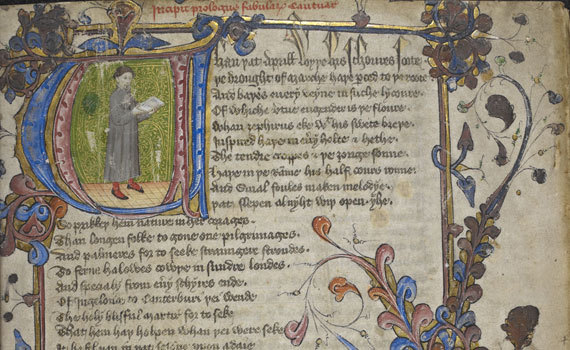 Incipit prologus fabular Cantuar
Whan þat aprill wyþe his shoures soote
þe drought of marche haþe perced to þe roote
And baþed every veyne in suche lycoure
Of whiche vertue engendred is þe floure
Whan zephirus eke wt his swete breþe
Inspired haþe in eūy holte & hethe
The tendre croppes & þe yonge sonne
haþe in þe Rāme his half cours ronne
And smal foules maken melodye
þat slepen al nyht wiþ open yhe
So prikkeþ hem nature in her corages
Than longen folke to gone one pilgrimages
And palmeres for to seeke straungere strondes
To ferne halowes cowþe in sundre londes
And specialy from eūy schyres ende
Of Ingelond to Canterbury þei wende
The holy blisful martir for to seke
That hem haþ holpen whan þei were seke